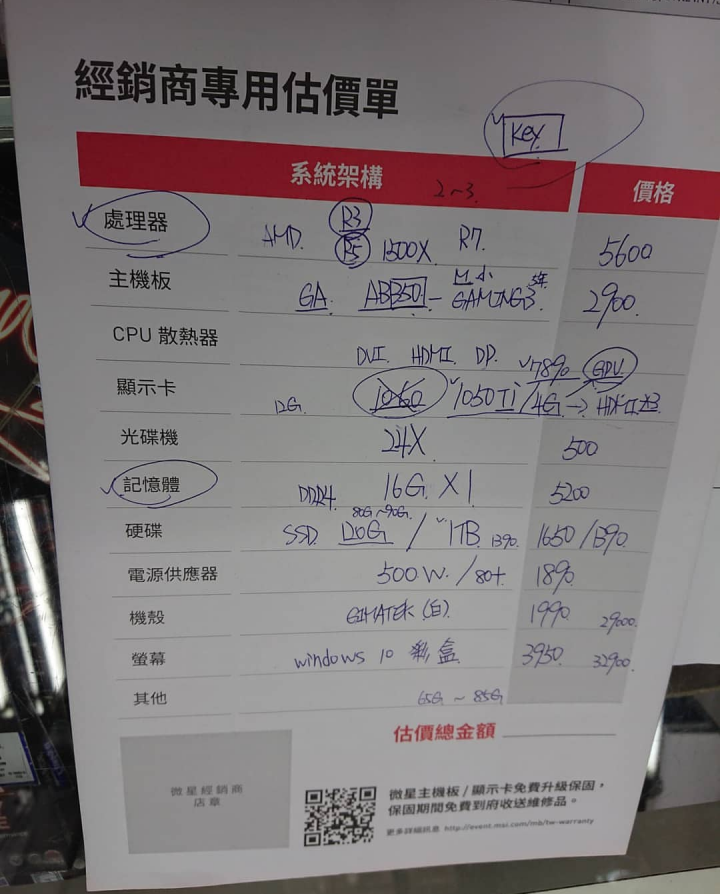 經銷商專用估價單
Key
系統架構 2~3 價格
R3
處理器 AMD. R5 1500X R7. 5600
主機板 GA. AB350 - GAMING3. 5年 2900.
CPU 散熱器
DVI. HDMI. DP. 7890
顯示卡 2G. 1060 1050TI/4G → HDMI
光碟機 24X 500
記憶體 DDR4 16G X 1 5200
80G~90G.
硬碟 SSD. 120G / 1TB 1390. 1650/1390.
電源供應器 500W./80+ 1890
機殼 (白). 1990 29000.
螢幕 windows 10 彩盒 3950 32900.
其他 65G ~ 85G
估價總金額
微星經銷商
店章
微星主機板/顯示卡免費升級保固,
保固期間免費到府收送維修品。
更多詳細訊息 http://event.msi.com/mb/tw-warranty